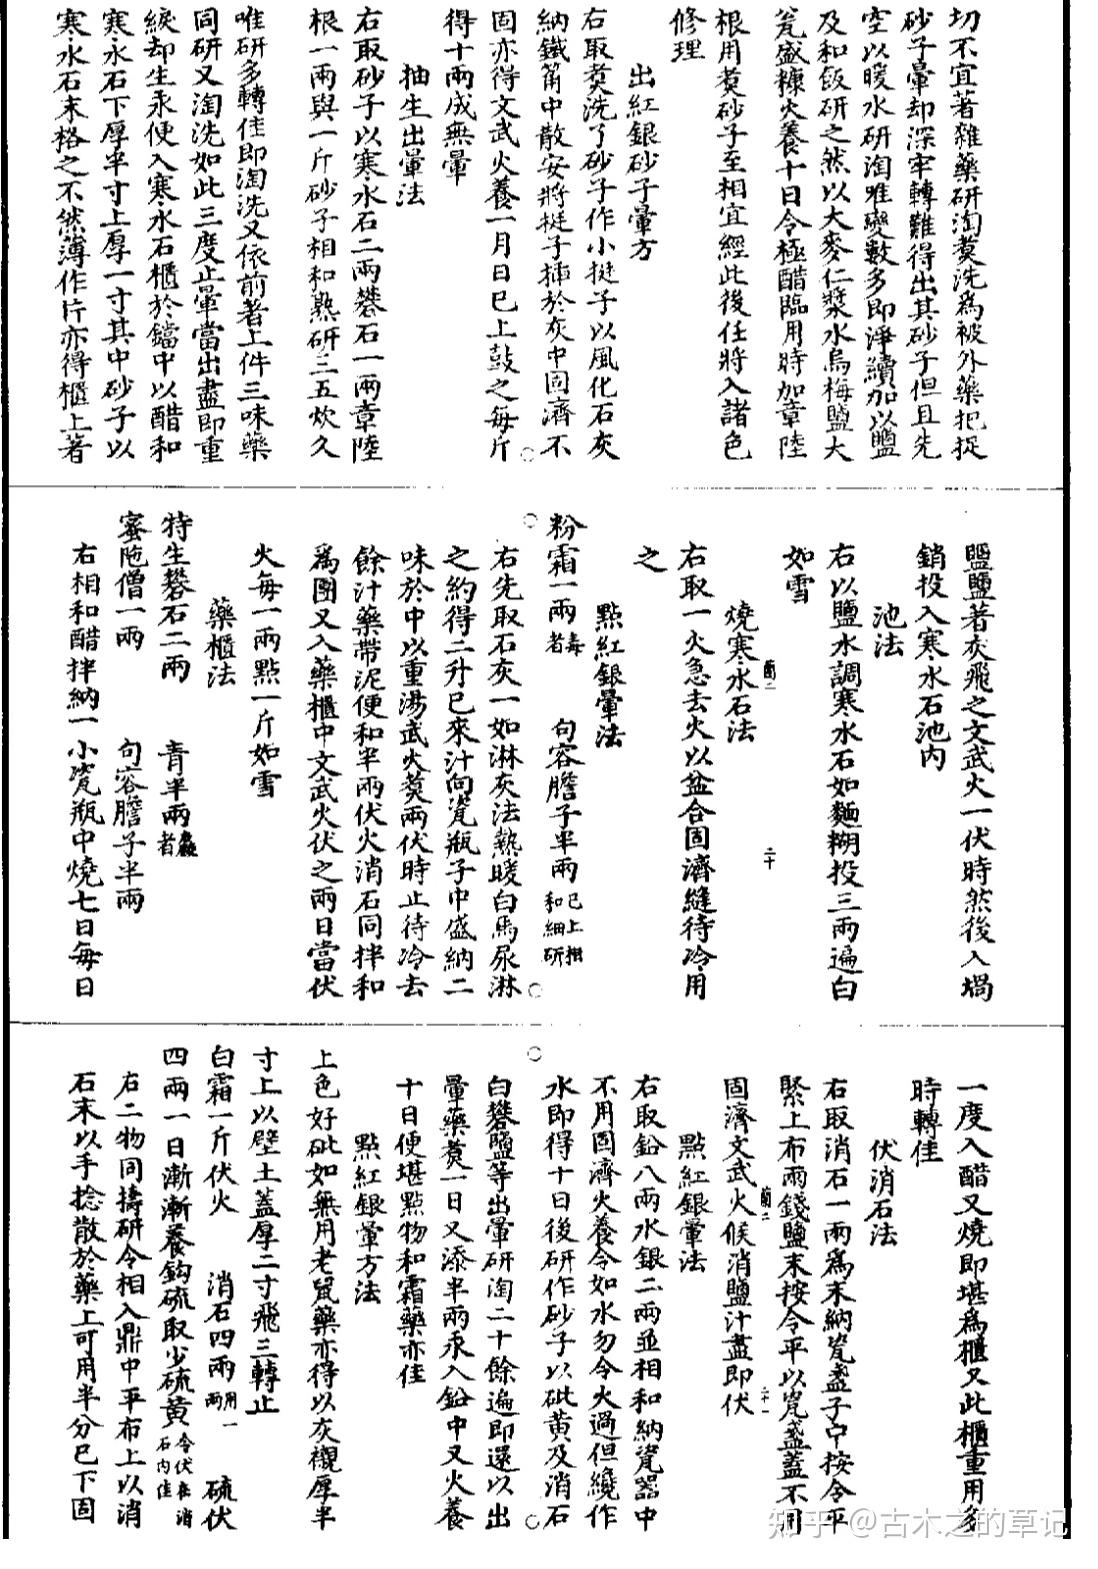 切不宜著雜藥研淘煑洗為被外藥把捉
砂子暈却深牢轉難得出其砂子但且先
空以暖水研淘唯變數多即淨續加以鹽
及和飯研之然以大麥仁漿水烏梅鹽大
瓮盛糠火養十日令極醋臨用時加章陸
根用煑砂子至相宜經此後任將入諸色
修理
出紅銀砂子暈方
右取煑洗了砂子作小挺子以風化石灰
納鐵筩中散安將挺子揷於灰中固濟不
固亦得文武火養一月日已上鼓之每斤
得十兩成無暈
抽生出暈法
右取砂子以寒水石二兩礬石一兩章陸
根一兩與一斤砂子相和熟研三五炊久
唯研多轉佳即淘洗又依前著上件三味藥
同研又淘洗如此三度止暈當出盡即重
綟却生汞便入寒水石櫃於鐺中以醋和
寒水石下厚半寸上厚一寸其中砂子以
寒水石末格之不然薄作片亦得櫃上著
鹽鹽著灰飛之文武火一伏時然後入堝
銷投入寒水石池內
池法
右以鹽水調寒水石如麵糊投三兩遍白
如雪
燒寒水石法
蘭二
二十
右取一火急去火以盆合固濟縫待冷用
之
點紅銀暈法
粉霜一兩毒者 句容膽子半兩已上相和細研
右先取石灰一如淋灰法熱暖白馬尿淋
之約得二升已來汁向瓷瓶子中盛納二
味於中以重湯武火煑兩伏時止待冷去
餘汁藥帶泥便和半兩伏火消石同拌和
為團又入藥櫃中文武火伏之兩日當伏
火每一兩點一斤如雪
藥櫃法
特生礬石二兩 青半兩者
蜜陁僧一兩 句容膽子半兩
右相和醋拌納一小瓷瓶中燒七日每日
一度入醋又燒即堪為櫃又此櫃重用多
時轉佳
伏消石法
右取消石一兩為末納瓷盞子中按令平
緊上布兩錢鹽末按令平以瓷盞蓋不用
固濟文武火候消鹽汁盡即伏
蘭二
二十一
點紅銀暈法
右取鉛八兩水銀二兩並相和納瓷器中
不用固濟火養令如水勿令火過但纔作
水即得十日後研作砂子以砒黃及消石
白礬鹽等出暈研淘二十餘遍即還以出
暈藥煑一日又添半兩汞入鉛中又火養
十日便堪點物和霜藥亦佳
點紅銀暈方法
上色好砒如無用老鼠藥亦得以灰襯厚半
寸上以壁土蓋厚二寸飛三轉止
白霜一斤伏火 消石四兩用一兩 硫伏
四兩一日漸漸養鈎硫取少硫黃令伏在消石內佳
右二物同擣研令相入鼎中平布上以消
石末以手捻散於藥上可用半分已下固
知乎 @古木之的草记